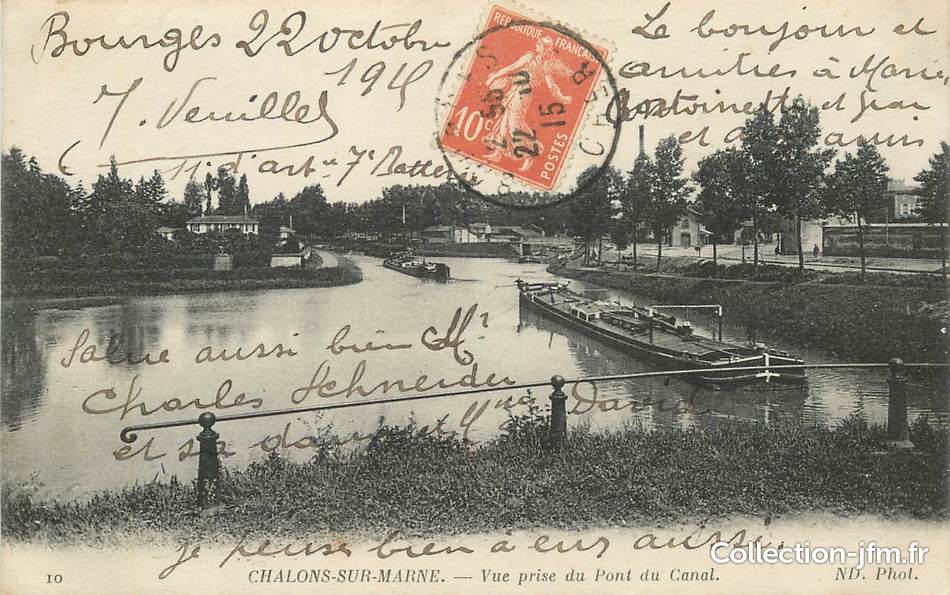 Bourges 22 octobre
1915
J. Veuilles
d'art. 7e Batterie
Le bonjour et
amitiés à Marie
Antoinette et
et à
REPUBLIQUE FRANÇAISE
10c
POSTES
CHER
22
15
Salue aussi bien Mr
Charles Schneider
et sa dame et Mme David
je pense bien à eux aussi.
10
CHALONS-SUR-MARNE. — Vue prise du Pont du Canal.
ND. Phot.
Collection-jfm.fr